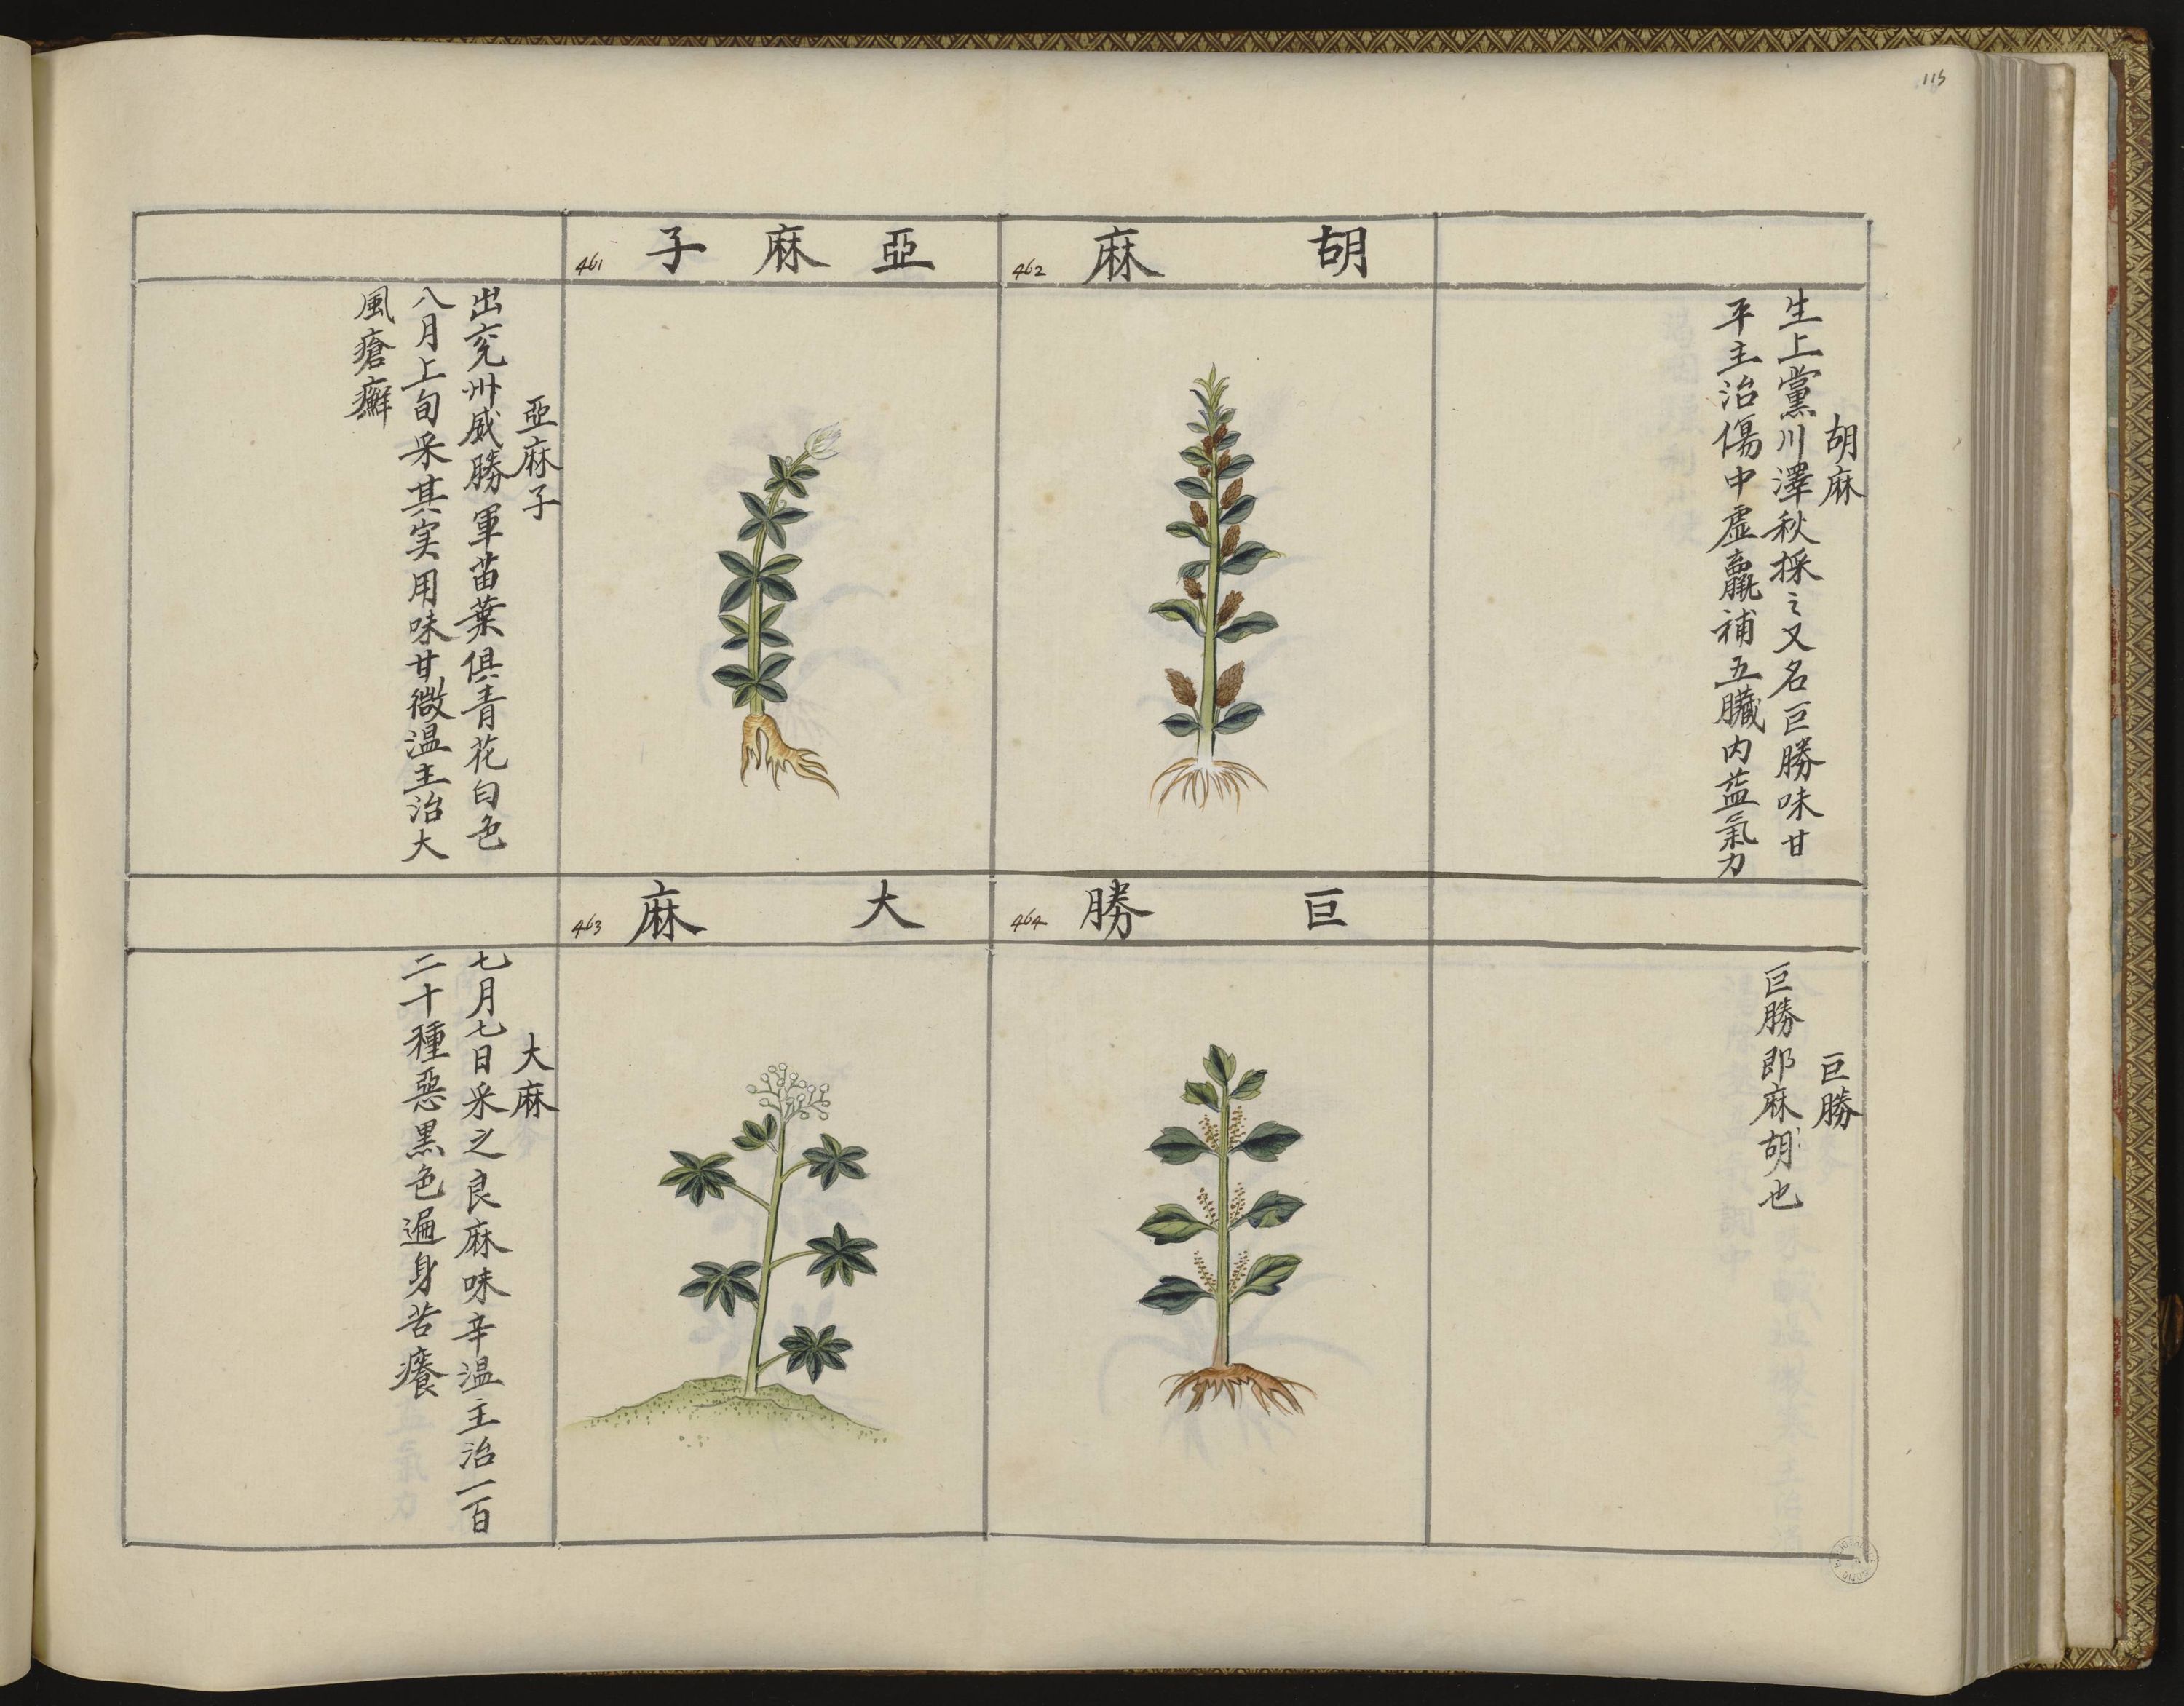 115
胡麻
462
亞麻子
461
胡麻
生上黨川澤秋採之又名巨勝味甘
平主治傷中虛羸補五臟内益氣力
亞麻子
出兖州威勝軍苗葉俱青花白色
八月上旬采其実用味甘微温主治大
風瘡癬
巨勝
464
大麻
463
巨勝
巨勝即麻胡也
大麻
七月七日采之良麻味辛温主治一百
二十種惡黒色遍身苦癢